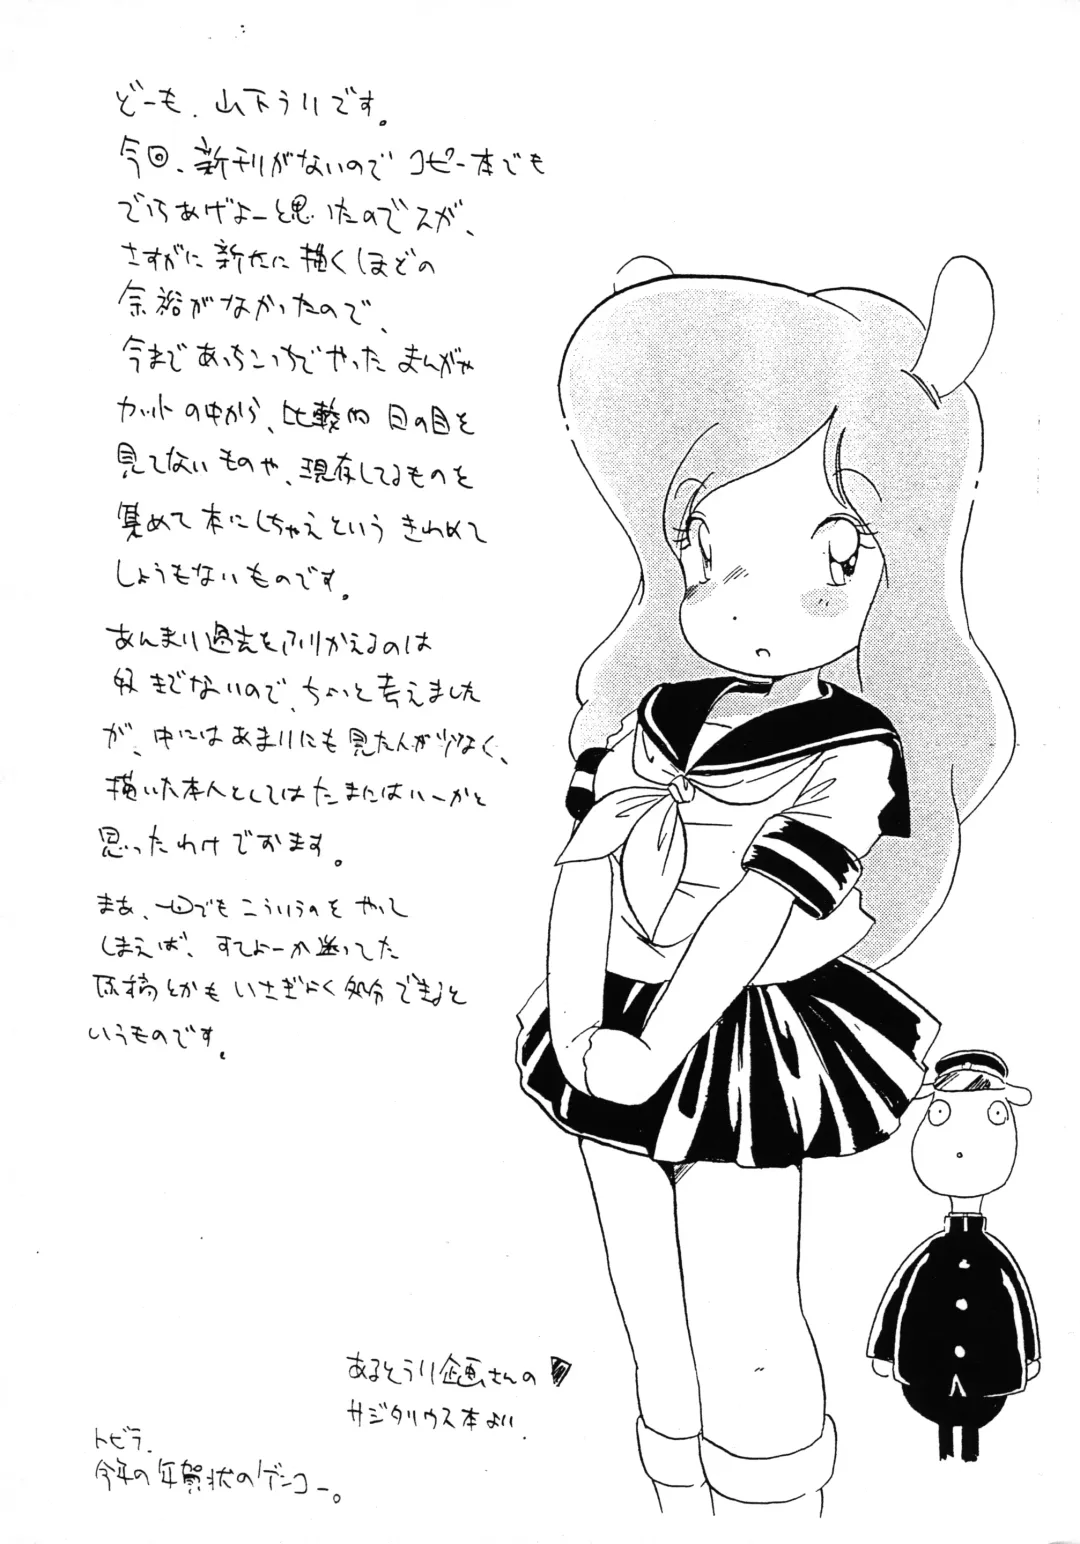 どーも、山下うりです。
今回、新刊がないのでコピー本でも
でっちあげよーと思いたのでスが、
さすがに新たに描くほどの
余裕がなかったので、
今まであっちこっちでやったまんがや
カットの中から、比較的日の目を
見てないものや、現存してるものを
集めて本にしちゃえというきわめて
しょうもないものです。
あんまり過去をふりかえるのは
好きでないので、ちょいと考えました
が、中にはあまりにも見た人が少なく、
描いた本人としてはたまにはいーかと
思ったわけでおます。
まあ、一回でもこういうのをやって
しまえば、すてよーか迷ってた
原稿とかもいさぎよく処分できると
いうものです。
あるとうり企画さんの
サジタリウス本より.
トビラ.
今年の年賀状のゲンコー。